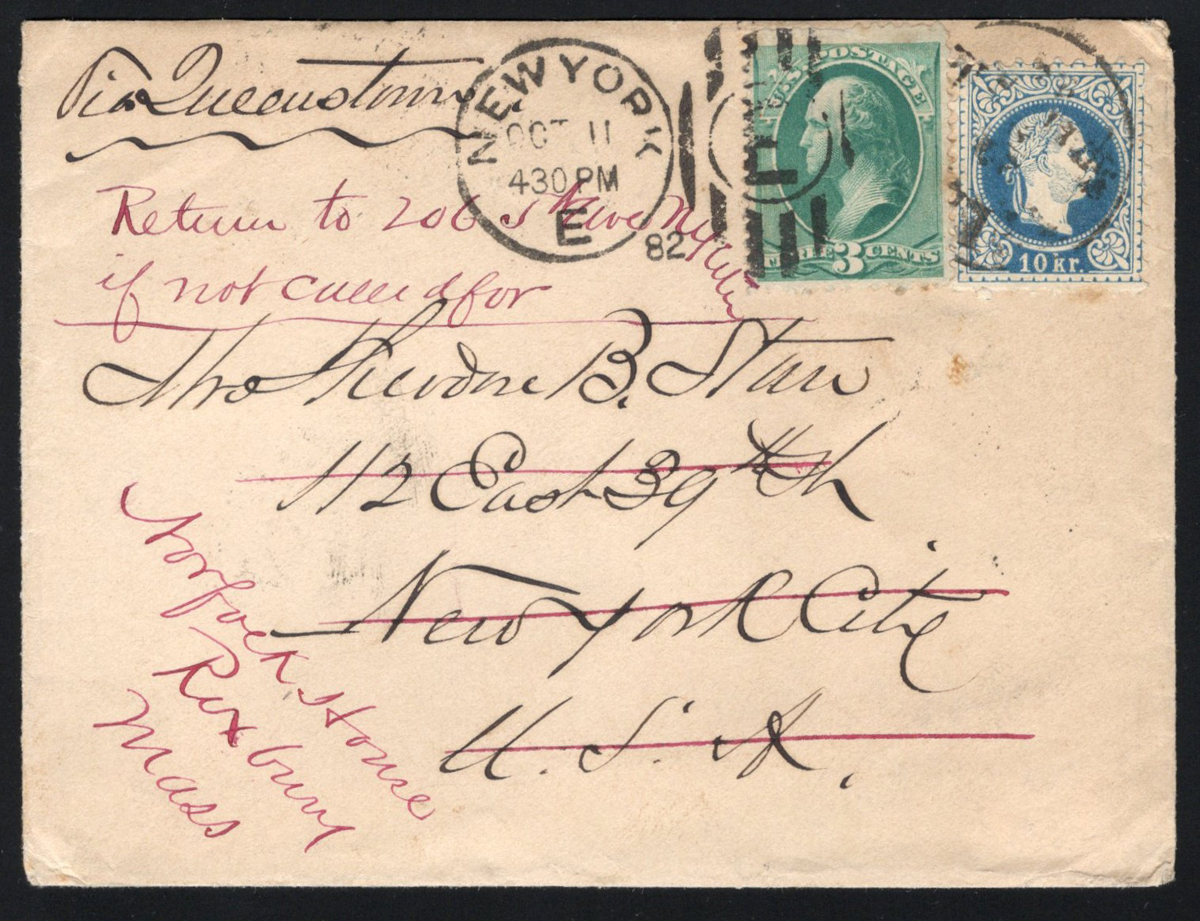 Via Queenstown
NEW YORK
OCT 11
430 PM
E
82
U.S. POSTAGE
THREE 3 CENTS
10 kr.
Return to 206 5th Ave New York
if not called for
Mrs Theodore B. Starr
112 East 39th St
New York City
U.S.A.
Norfolk House
Roxbury
Mass